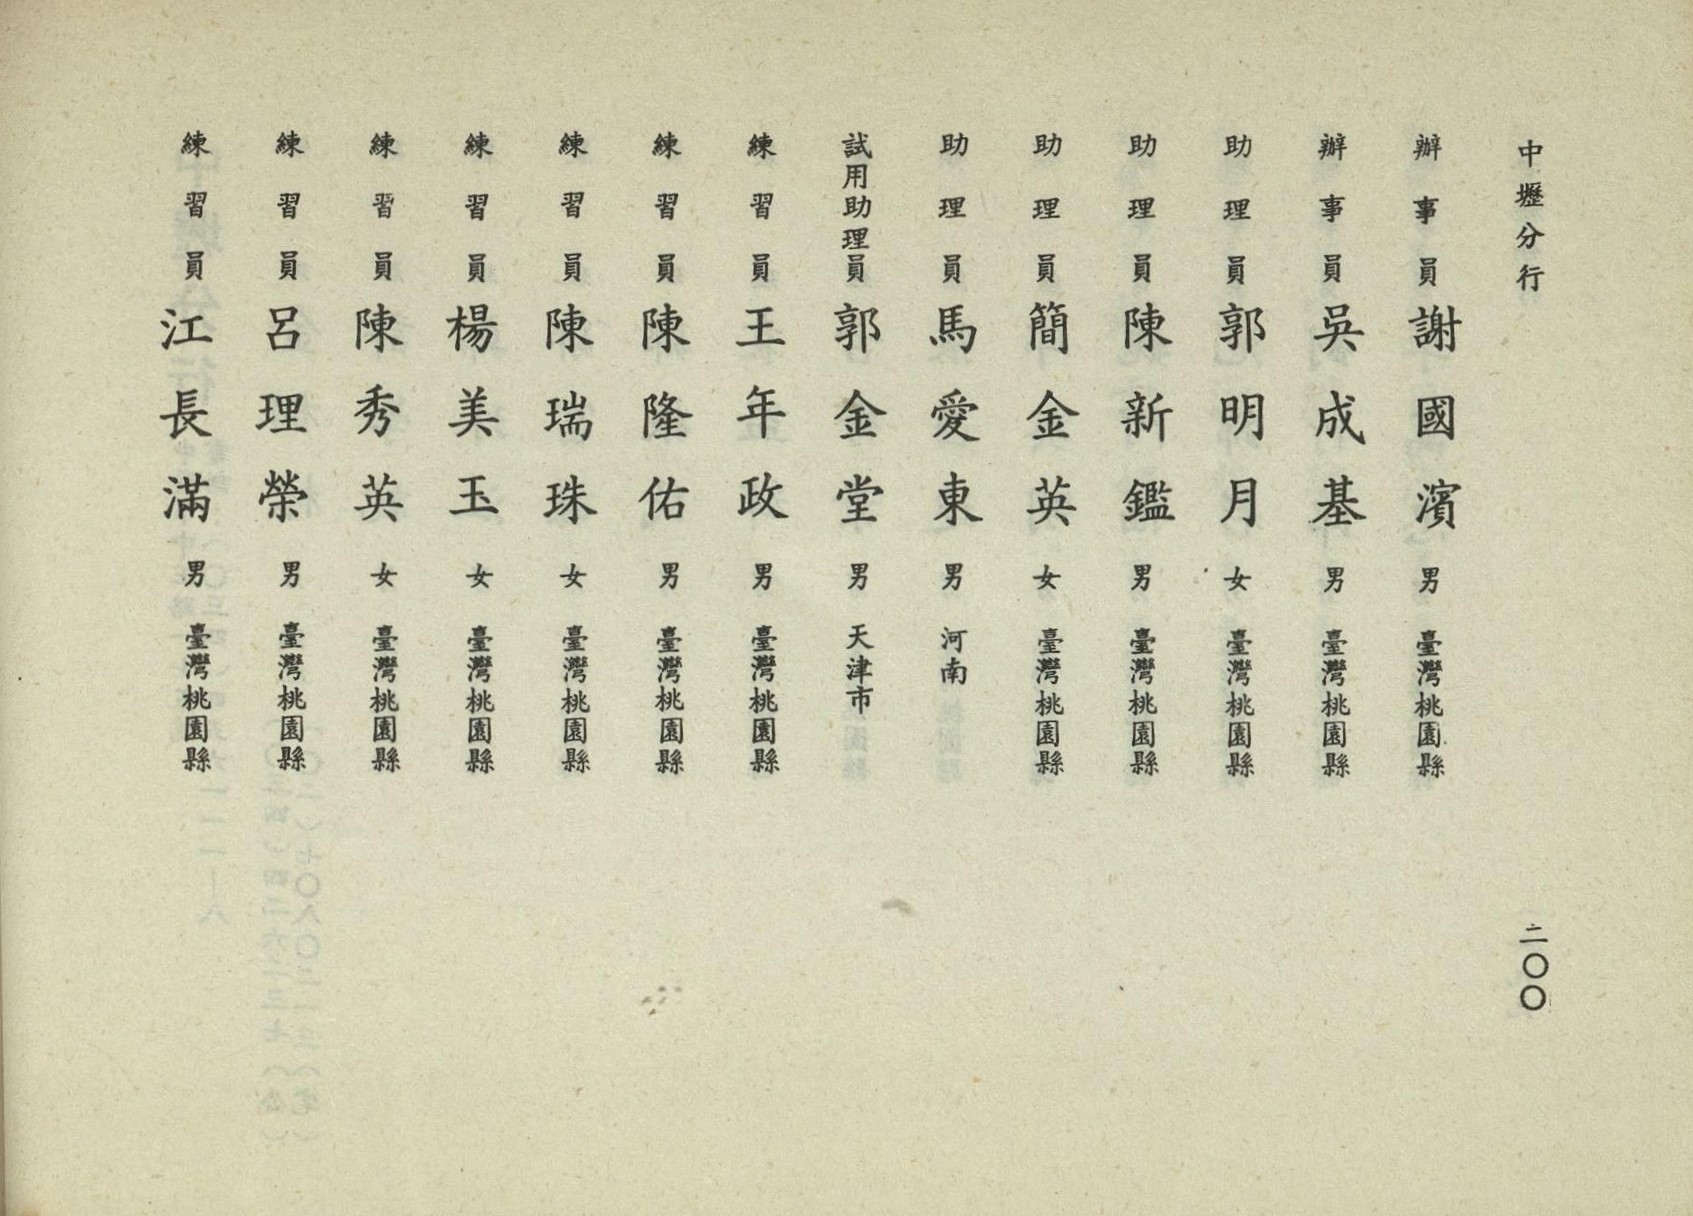 中壢分行 二〇〇
辦事員 謝國濱 男 臺灣桃園縣
辦事員 吳成基 男 臺灣桃園縣
助理員 郭明月 女 臺灣桃園縣
助理員 陳新鑑 男 臺灣桃園縣
助理員 簡金英 女 臺灣桃園縣
助理員 馬愛東 男 河南
試用助理員 郭金堂 男 天津市
練習員 王年政 男 臺灣桃園縣
練習員 陳隆佑 男 臺灣桃園縣
練習員 陳瑞珠 女 臺灣桃園縣
練習員 楊美玉 女 臺灣桃園縣
練習員 陳秀英 女 臺灣桃園縣
練習員 呂理榮 男 臺灣桃園縣
練習員 江長滿 男 臺灣桃園縣